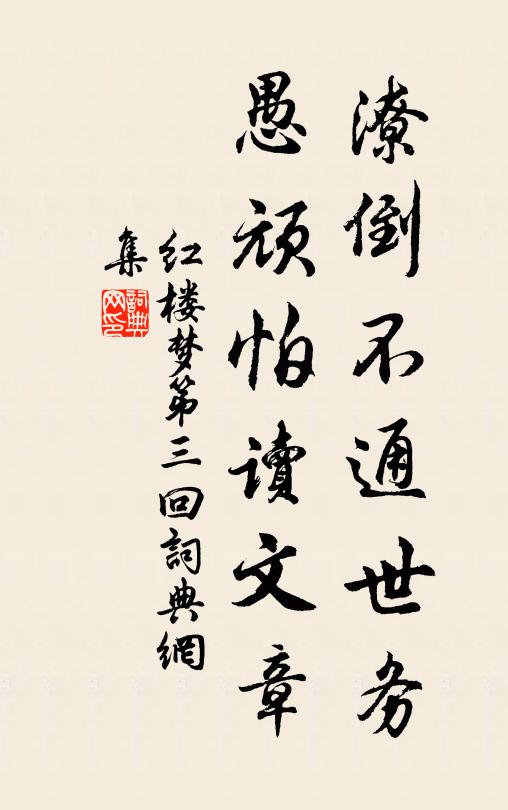 潦倒不通世务
愚顽怕读文章
红楼梦第三回詞典網
集
詞典网印